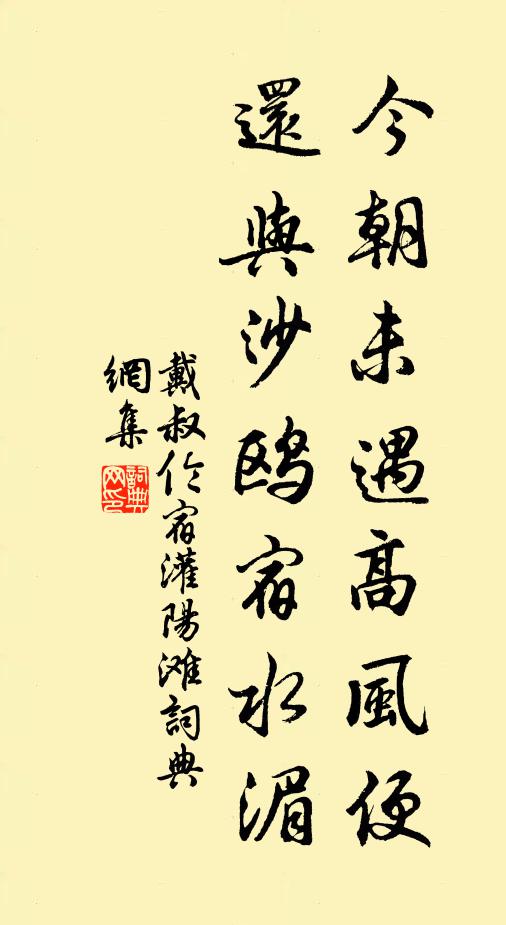 今朝未遇高風便
還與沙鸥宿水湄
戴叔伦宿灌陽滩詞典
網集
詞典
网印